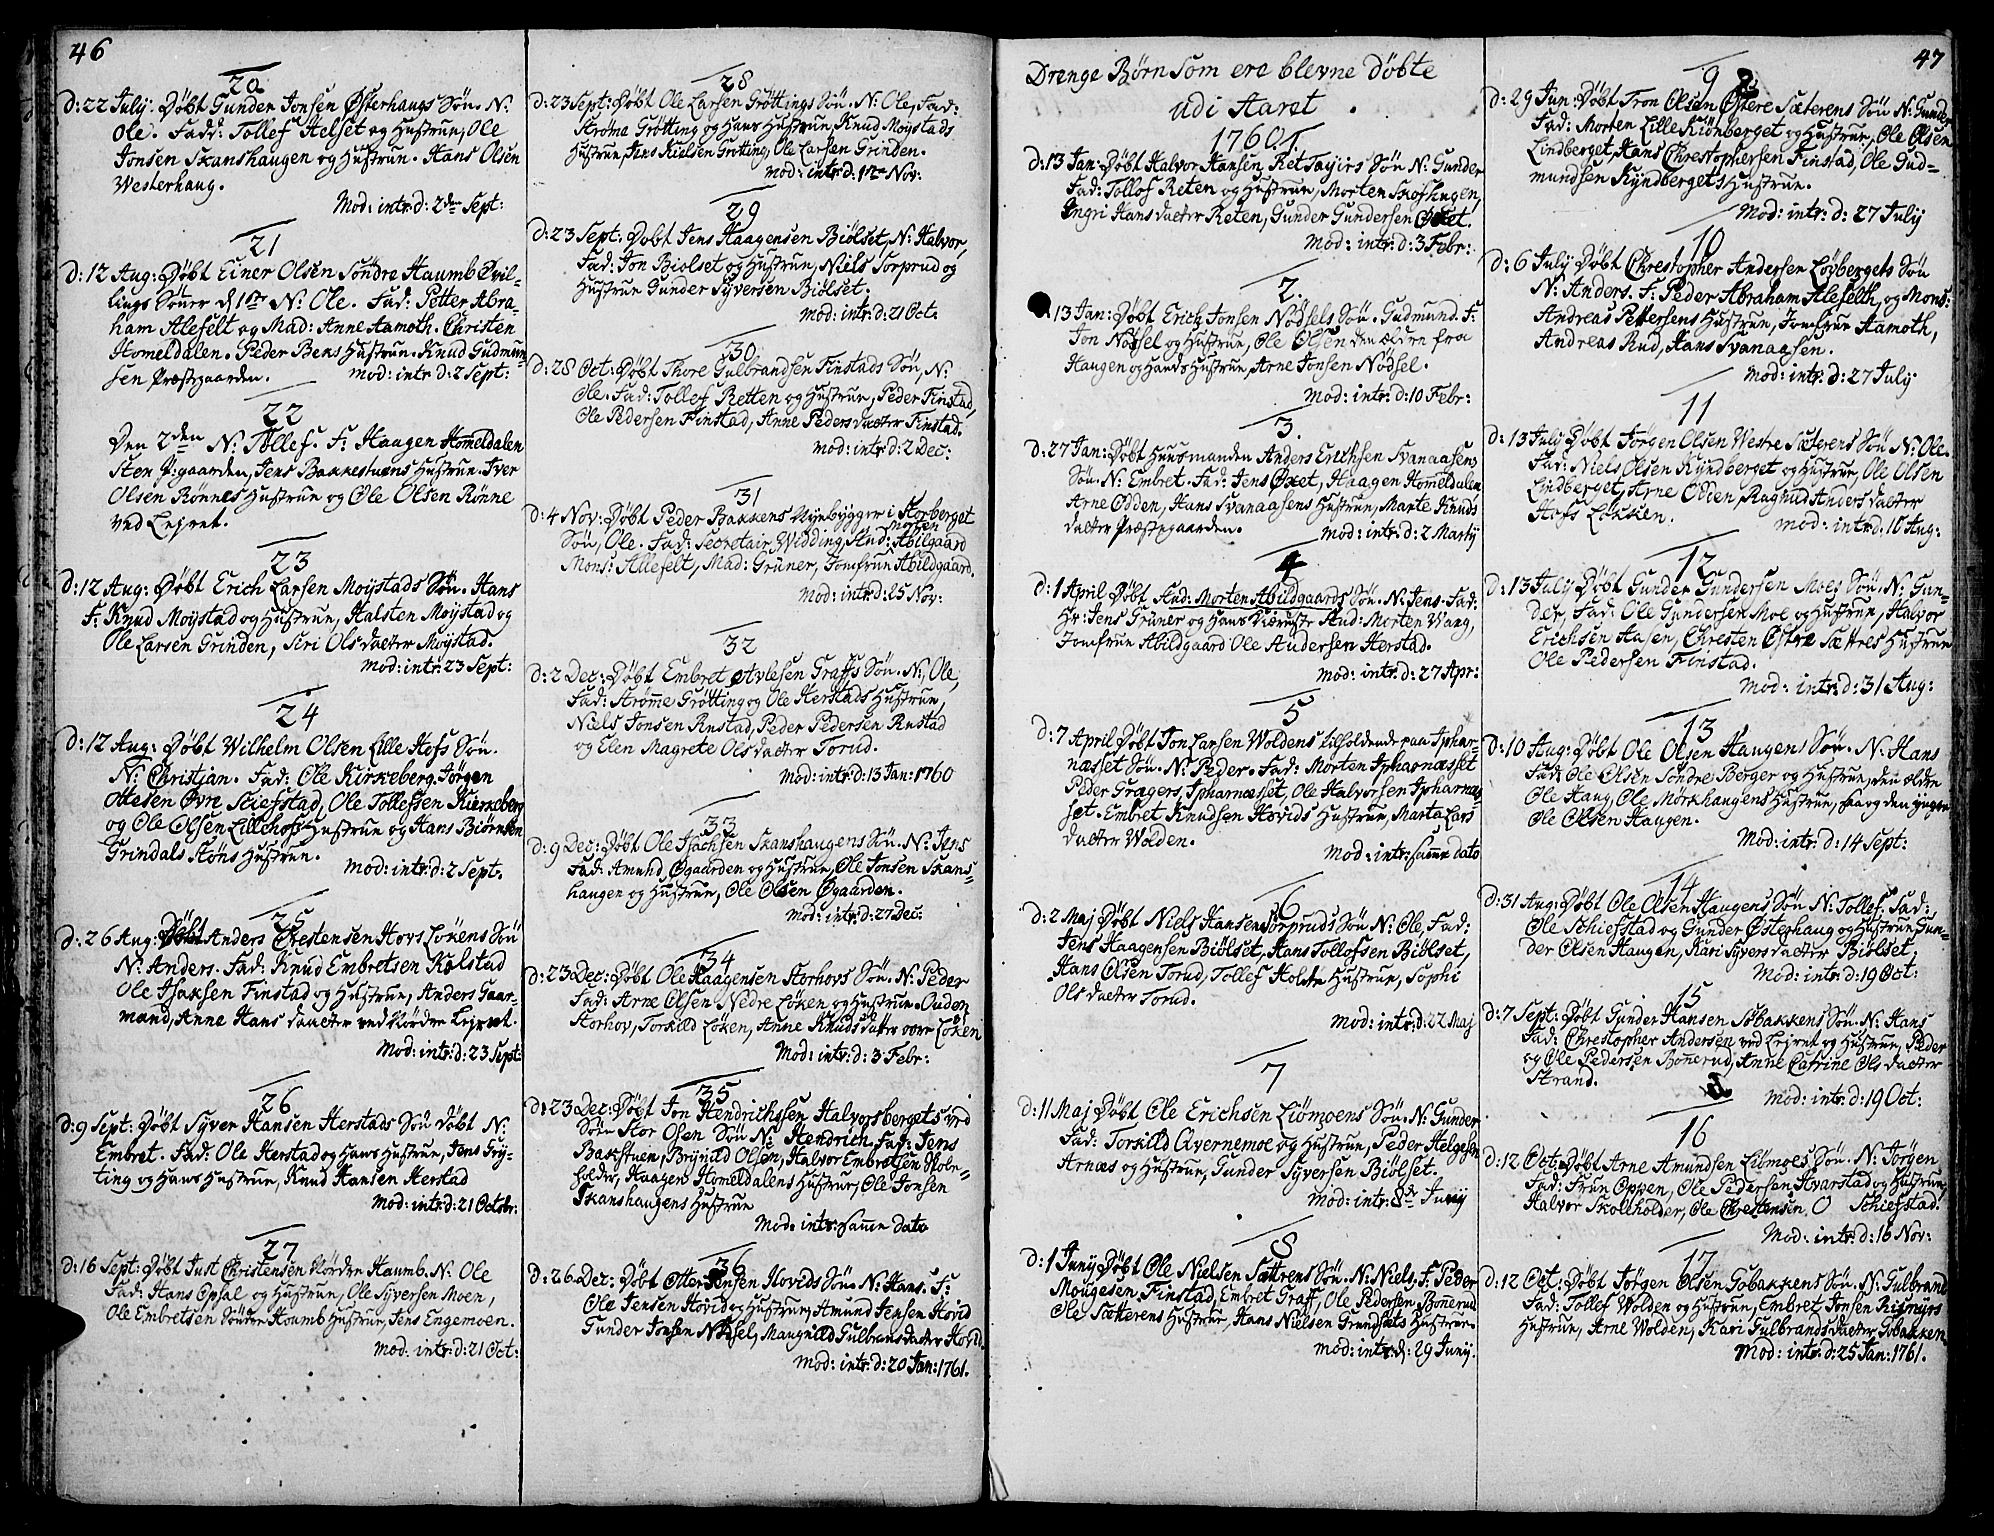 46
20
d: 22 July: Døbt Gunder Jonsen Østerhaugs Søn. N:
Ole. Fadd: Tollef Helset og Hustrue, Ole
Jonsen Skanshaugen og Hustrue. Hans Olsen
Westerhaug.
Mod: intr d: 2den Sept:
21
d: 12 Aug: Døbt Einer Olsen Søndre Haumb Tvil-
lings Sønner d 1ste N: Ole. Fad: Petter Abra-
ham Alefelt og Mad: Anne Aamoth. Christen
Homeldalen. Peder Bens Hustrue. Knud Gudmun-
sen Præstgaarden. Mod: intr d: 2 Sept:
22
Den 2den N: Tollef. F: Haagen Homeldalen
Sten P:gaarden, Jens Bakkestuens Hustrue. Iver
Olsen Rønnes Hustrue og Ole Olsen Rønne
ved Lejret.
23
d: 12 Aug: Døbt Erich Larsen Moystads Søn. Hans
F: Knud Moystad og Hustrue, Halsten Moystad og
Ole Larsen Grinden, Siri Ols daatter Moystad.
Mod: intr: 23 Sept:
24
d: 12 Aug: Døbt Wilhelm Olsen Lille Hofs Søn.
N: Christian. Fad: Ole Kirkeberg. Jørgen
Ottesen Øvre Skiefstad, Ole Tollefsen Kierkeberg
og Ole Olsen Lillehofs Hustrue og Hans Biørnsen
Grindals Støns Hustrue.
Mod: intr: d: 2 Sept.
25
d: 26 Aug: Døbt Anders Chrestensen Hovs Løkens Søn
N: Anders. Fad: Knud Embretsen Kolstad
Ole Isaksen Finstad og Hustrue, Anders Gaar-
mand, Anne Hans daatter ved Nordre Lejret.
Mod: intr: d: 23 Sept:
26
d: 9 Sept: Døbt Syver Hansen Herstads Søn døbt N:
Embret. Fad: Ole Herstad og Hans Hustrue, Jens Fry-
ting og Hans Hustrue, Knud Hansen Herstad
Mod: intr: d: 21 Octobr:
27
d: 16 Sept: Døbt Just Christensen Nordre Haumb. N: Ole
Fad: Hans Opsal og Hustrue, Ole Syversen Moen,
Ole Embretsen Søndre Houmb Hustrue, Jens Engemoen.
Mod: intr: d: 21 Oct:
28
d: 23 Sept: Døbt Ole Larsen Grøttings Søn. N: Ole, Fad:
Strøme Grøtting og Hans Hustrue, Knud Moystads
Hustrue, Jens Nielsen Grøtting, Ole Larsen Grinden.
Mod: intr: d: 1ste Nov:
29
d: 23 Sept: Døbt Jens Haagensen Biølset, N: Halvor,
Fad: Jon Biolset og Hustrue, Niels Torprud og
Hustrue Gunder Syversen Biølset.
Mod: intr: d: 21 Oct:
30
d: 28 Oct: Døbt Thore Gulbrandsen Finstads Søn, N:
Ole. Fad: Tollef Retten og Hustrue, Peder Finstad,
Ole Pedersen Finstad, Anne Peders daatter Finstad.
Mod: intr d: 2 Dec:
31
d: 4 Nov: Døbt Peder Bakkens Nyebygger i Storberget
Søn, Ole. Fad: Secretair Widding, Aud: Morten Abilgaard
Mons: Allefelt, Mad: Gruner, Jomfrue Abildgaard.
Mod: intr: d: 25 Nov:
32
d: 2 Dec: Døbt Embret Atlesen Graffs Søn. N: Ole,
Fad: Strøme Grøtting og Ole Herstads Hustrue,
Niels Jonsen Rustad, Peder Pedersen Rustad
og Elen Magrete Ols daatter Torud.
Mod: intr: d: 13 Jan: 1760
33
d: 9 Dec: Døbt Ole Isachsen Skanshaugens Søn. N: Jens
Fad: Amund Øgaarden og Hustrue, Ole Jonsen Skans-
haugen og Hustrue, Ole Olsen Øgaarden.
Mod: intr: d: 27 Dec:
34
d: 23 Dec: Døbt Ole Haagensen Storhovs Søn. N: Peder
Fad: Arne Olsen Nedre Løken og Hustrue. Ouden
Storhov, Torkild Løken, Anne Knuds datter øvre Løken
Mod: intr: d: 3 Febr:
35
d: 23 Dec: Døbt Jon Hendrichssen Halvorsbergets ved
Søre Stor Osen Søn N: Hendrich. Fad: Jens
Bakstuen, Brynild Olsen, Halvor Embretsen Skole-
holder, Haagen Homeldalens Hustrue, Ole Jonsen
Skanshaugens Hustrue
Mod: intr: samme dato
36
d: 26 Dec: Døbt Otter Jensen Hovids Søn. N: Hans. F:
Ole Jensen Hovid og Hustrue, Amund Jensen Hovid
Gunder Jonsen Nøhsel, Maugnild Gulbrandsdatter Hovid.
Mod: intr: d: 20 Jan: 1761.
Drenge Børn som ere blevne døbte
udi Aaret
1760.
1.
d: 13 Jan: Døbt Halvor Hansen Ret Tagirs Søn N: Gunder
Fad: Tollof Reten og Hustrue, Morten Skofhugen,
Ingri Hans daatter Reten, Gunder Gundersen Øxet.
Mod: intr: d: 3 Febr:
2.
13 Jan: Døbt Erich Jonsen Nødsels Søn. Gudmund. F:
Jon Nøhsel og Hustrue, Ole Olsen den ældre fra
Haugen og Hands Hustrue, Arne Jonsen Nødsel.
Mod: intr: d: 10 Febr:
3.
d: 27 Jan: Døbt Huusmanden Anders Erichsen Svanaasens
Søn. N: Embret. Fad: Jens Øxet, Haagen Homeldalen
Arne Odden, Hans Svanaasens Hustrue, Marte Knuds
daatter Præstegaarden. Mod: intr: d: 2 Marty
4
d: 1 April Døbt Aud: Morten Abildgaards Søn. N: Jens. Fad:
Hr: Jens Gruner og Hans Kiæreste Aud: Morten Wang,
Jomfrue Abildgaard Ole Andersen Herstad.
Mod: intr: d: 27 Apr:
5
d: 7 April Døbt Jon Larsen Woldens tilholdende paa Iphar-
næsset Søn. N: Peder. Fad: Morten Ipharnæsset
Peder Grægers, Ipharnæsset, Ole Halvorsen Ipharnæs-
set. Embret Knudsen Hovids Hustrue, Marta Lars
daatter Wolden.
Mod: intr: samme dato
6
d: 2 Maj Døbt Niels Hansen Torpruds Søn N: Ole, Fad:
Jens Haagensen Biølset, Hans Tollofsen Biølset,
Hans Olsen Torud, Tollef Holete Hustrue, Sophi
Ols daatter Torud.
Mod: intr: d: 22 Maj
7
d: 11 Maj Døbt Ole Erichsen Liømoens Søn. N: Gunder
Fad: Torkild Qvernemoe og Hustrue, Peder Helgesen
Arnæs og Hustrue, Gunder Syversen Biølset.
Mod: intr: 8de Junij
8
d: 1 Juny Døbt Ole Nielsen Sættrens Søn. N: Niels, F: Peder
Mougesen Finstad, Embret Graff, Ole Pedersen Bonerud
Ole Sætterens Hustrue, Hans Nielsen Grundsæts Hustrue.
Mod: intr: d: 29 Junij.
47
9
d: 29 Jun: Døbt Tron Olsen Østere Sæterens Søn N: Gunder
Fad: Morten Lille Kiønberget og Hustrue, Ole Olsen
Lindberget, Hans Chrestophersen Finstad, Ole Gud-
mundsen Kyndbergets Hustrue.
Mod: intr: d: 27 July
10
d: 6 July Døbt Chrestopher Andersen Løvbergets Søn
N: Anders. F: Peder Abraham Alefelth, og Mons:
Andreas Pettersens Hustrue, Jomfrue Aamoth,
Andreas Rud, Hans Svanaasen.
Mod: intr: d: 27 July
11
d: 13 July Døbt Jørgen Olsen Westre Sæterens Søn N: Ole.
Fad: Niels Olsen Kyndberget og Hustrue, Ole Olsen
Lindberget, Arne Odden, Ragnild Anders daatter
Hofs Løkken. Mod: intr: d: 10 Aug:
12
d: 13 July Døbt Gunder Gundersen Moes Søn. N: Gun-
der, Fad: Ole Gundersen Moe og Hustrue, Halvor
Erichsen Aasen, Chresten Østre Sættres Hustrue
Ole Pedersen Finstad.
Mod: intr: d: 31 Aug:
13
d: 10 Aug: Døbt Ole Olsen Haugens Søn. N: Hans
Fad: Ole Olsen Søndre Berger og Hustrue, den ældre
Ole Haug, Ole Mørkhaugens Hustrue, saa og den yngre
Ole Olsen Haugen.
Mod: intr: d: 14 Sept:
14
d: 31 Aug: Døbt Ole Olsen Haugens Søn N: Tollef. Fad:
Ole Schiefstad og Gunder Østerhaug og Hustrue, Gun-
der Olsen Haugen, Kari Syvers daatter Biølset,
Mod: intr: d: 19 Oct:
15
d: 7 Sept: Døbt Gunder Hansen Søbakkens Søn. N: Hans
Fad: Chrestopher Andersen ved Lejret og Hustrue, Peder
og Ole Pedersen Bonerud, Anne Catrine Ols daatter
Strand.
Mod: intr: d: 19 Oct:
16
d: 12 Oct: Døbt Arne Amundsen Liømoes Søn. N: Jørgen
Fad: Trun Oppen, Ole Pedersen Hvarstad og Hustrue,
Halvor Skolholder, Ole Chrestensen, O Schiefstad.
Mod: intr: d: 16 Nov:
17
d: 12 Oct: Døbt Jørgen Olsen Gobakkens Søn. N: Gulbrand
Fad: Tollef Wolden og Hustrue, Embret Jonsen Rismyrs
Hustrue, Arne Wolden, Kari Gulbrands daatter Gobakken
Mod: intr: d: 25 Jan: 1761.